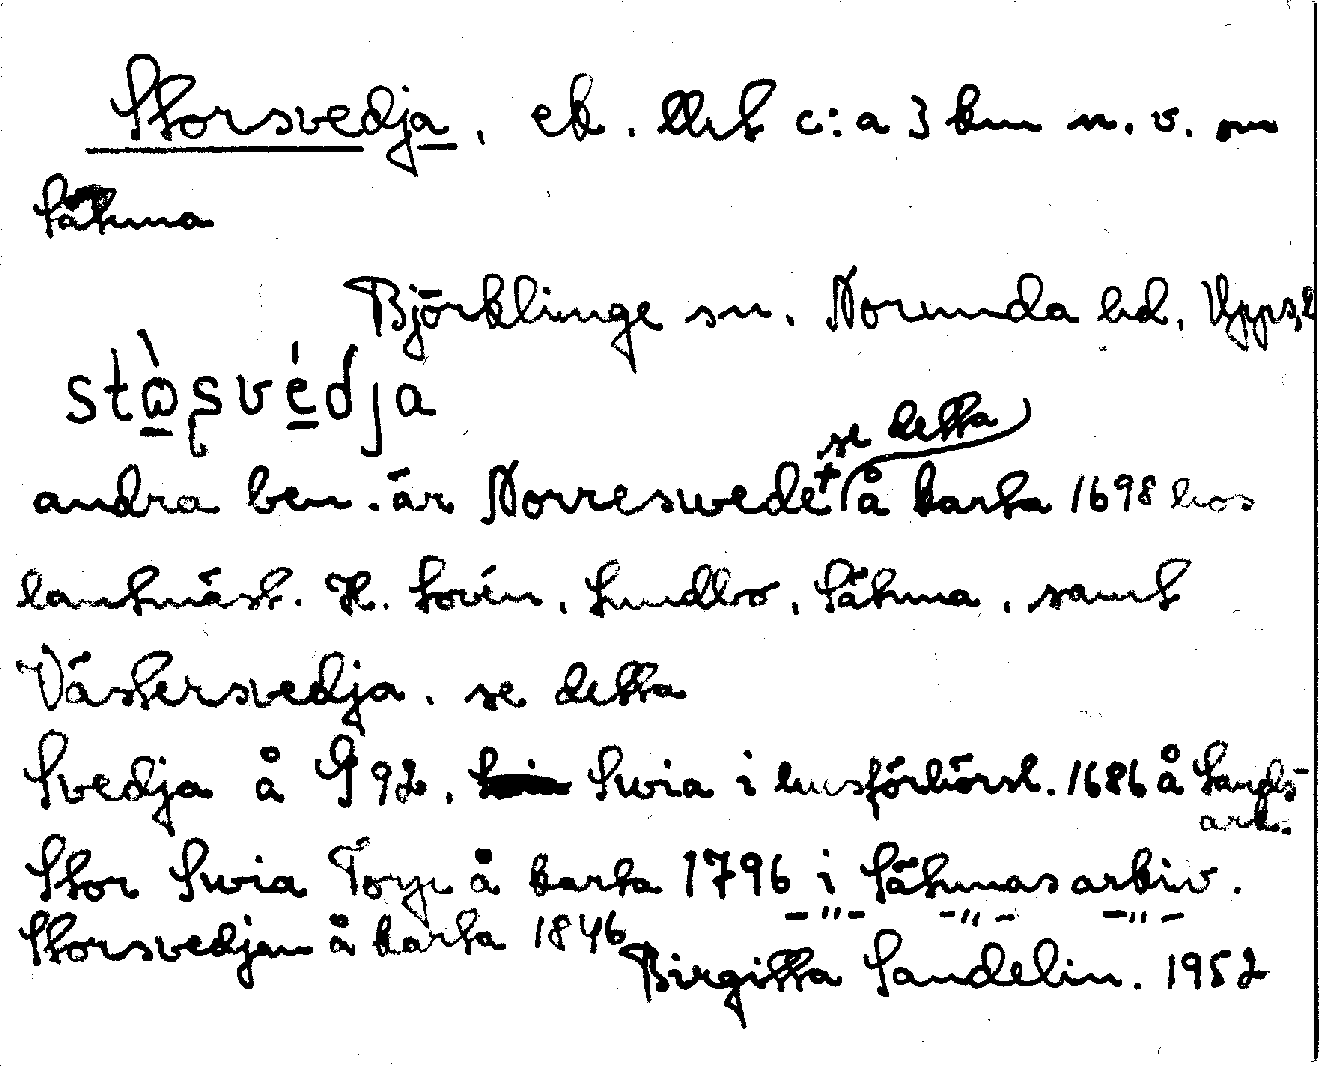 Storsvedja, ek. litet c:a 3 km n.v. om
Sätuna
Björklinge sn. Norunda hd. Upps.l
stὼṣvédja
se detta
andra ben. är Norreswede+ å karta 1698 hos
lantmäst. H. Lovén, Lundbo, Sätuna, samt
Västersvedja. se detta
Svedja å G 92, Swia i husförhörsl. 1686 å Landsark.
Stor Swia Torp å karta 1796 i Sätunas arkiv.
Storsvedjan å karta 1846 -"- -"- -"-
Birgitta Sandelin. 1952